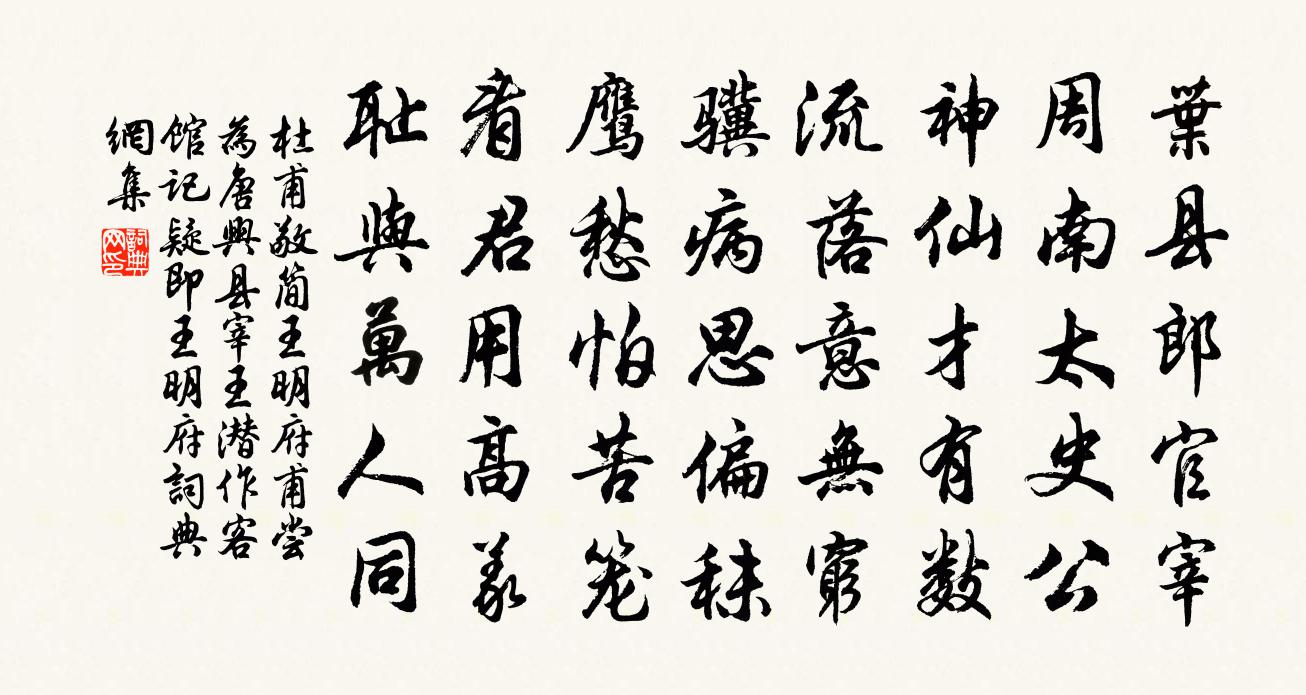 葉县郎官宰
周南太史公
神仙才有数
流落意無窮
骥病思偏秣
鹰愁怕苦笼
看君用高义
耻與萬人同
杜甫敬简王明府甫尝
為唐興县宰王潜作客
馆记疑即王明府詞典
網集
詞典网印